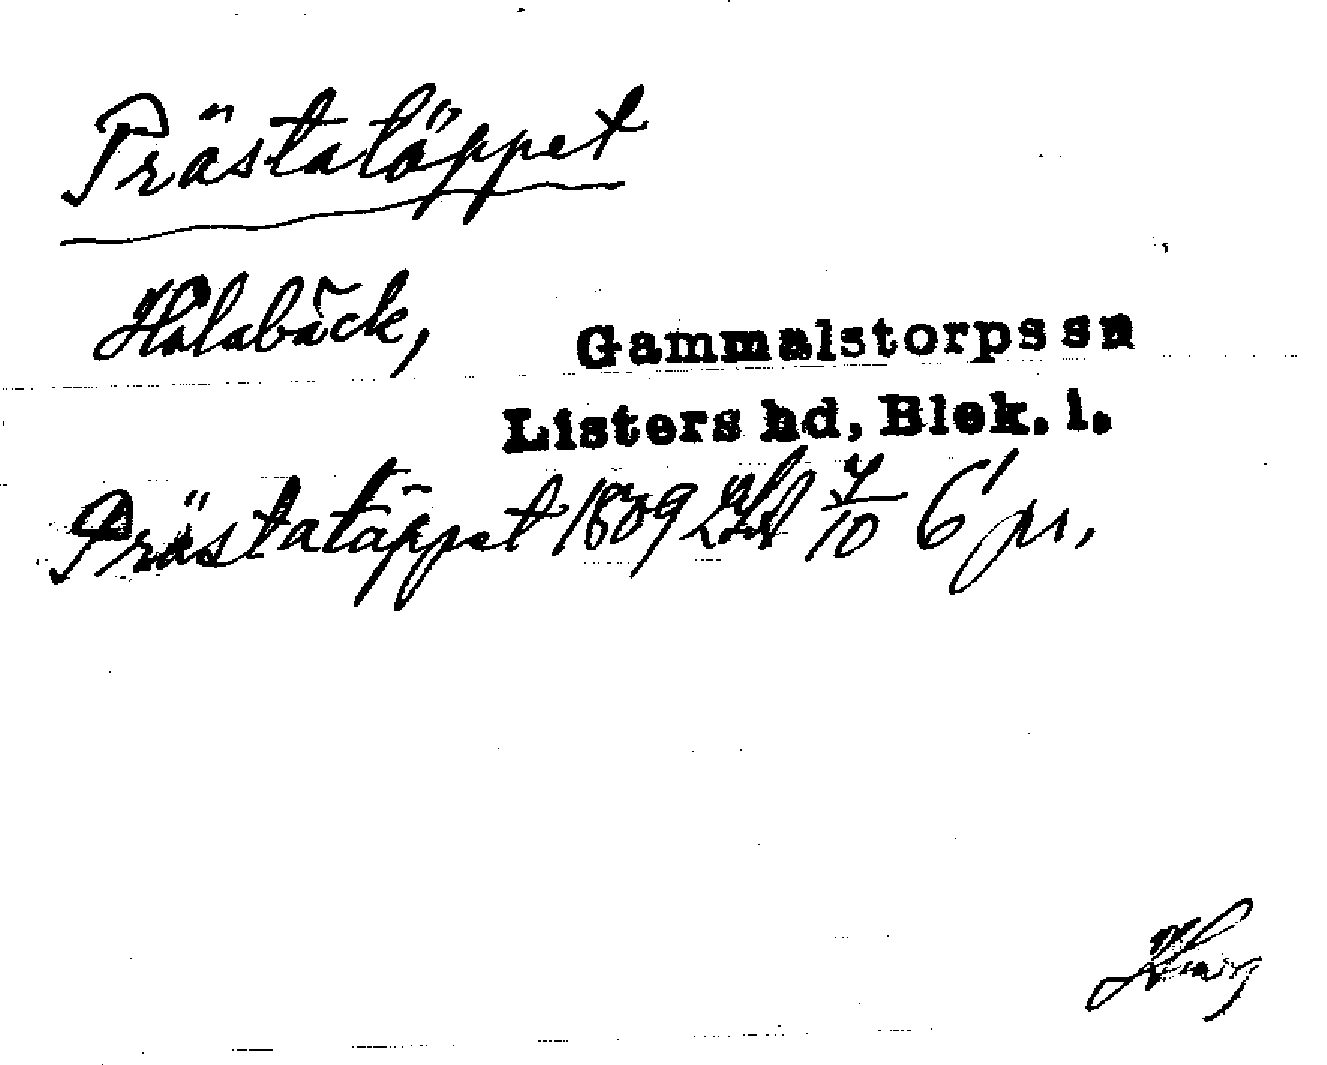 Prästatäppet
Holabäck, Gammalstorps sn
Listers hd, Blek. l.
Prästatäppet 1809 LSA 4/10 6' pr.